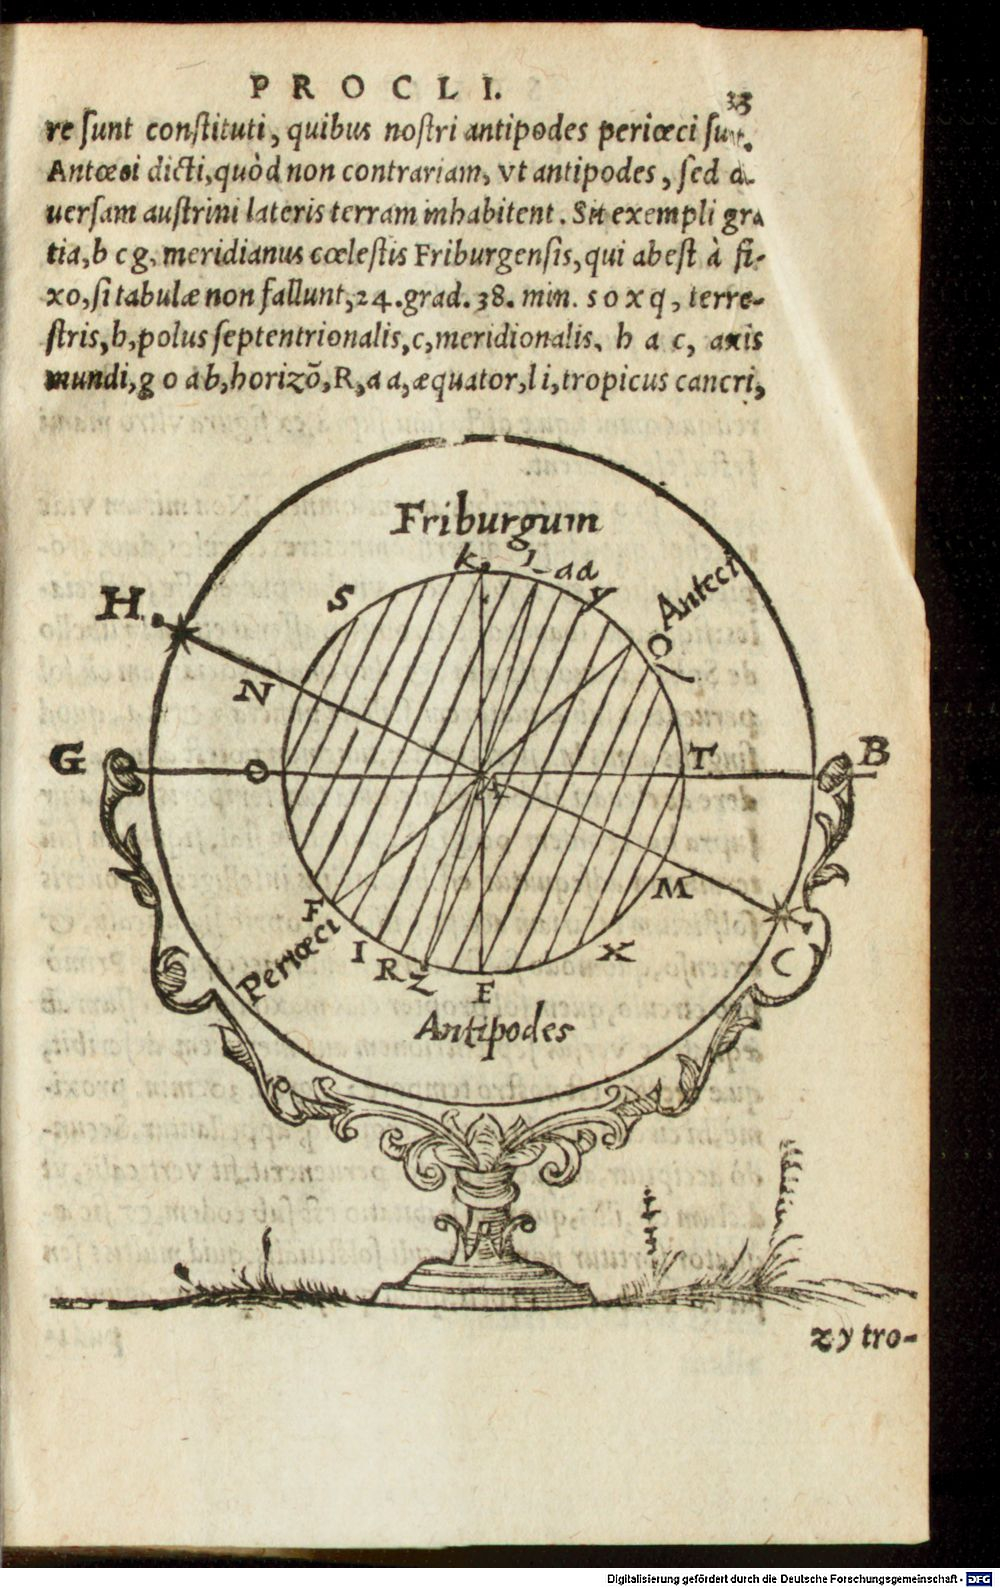 PROCLI.
33
re ſunt conſtituti, quibus noſtri antipodes periœci
Antœci dicti, quòd non contrariam, vt antipodes, ſed
uerſam auſtrini lateris terram inhabitent. Sit exempli gra
tia, b c g, meridianus cœleſtis Friburgenſis, qui abeſt à fi-
xo, ſi tabulæ non fallunt, 24. grad. 38. min. s o x q, terre-
ſtris, h, polus ſeptentrionalis, c, meridionalis, h a c, axis
mundi, g o a b, horizõ, R, a a, æquator, l i, tropicus cancri,
Friburgum
K
L
aa
Y
S
Anteci
H
N
G
O
A
T
B
M
C
F
Periœci
I
R
Z
E
X
Antipodes
z y tro-
Digitalisierung gefördert durch die Deutsche Forschungsgemeinschaft - DFG